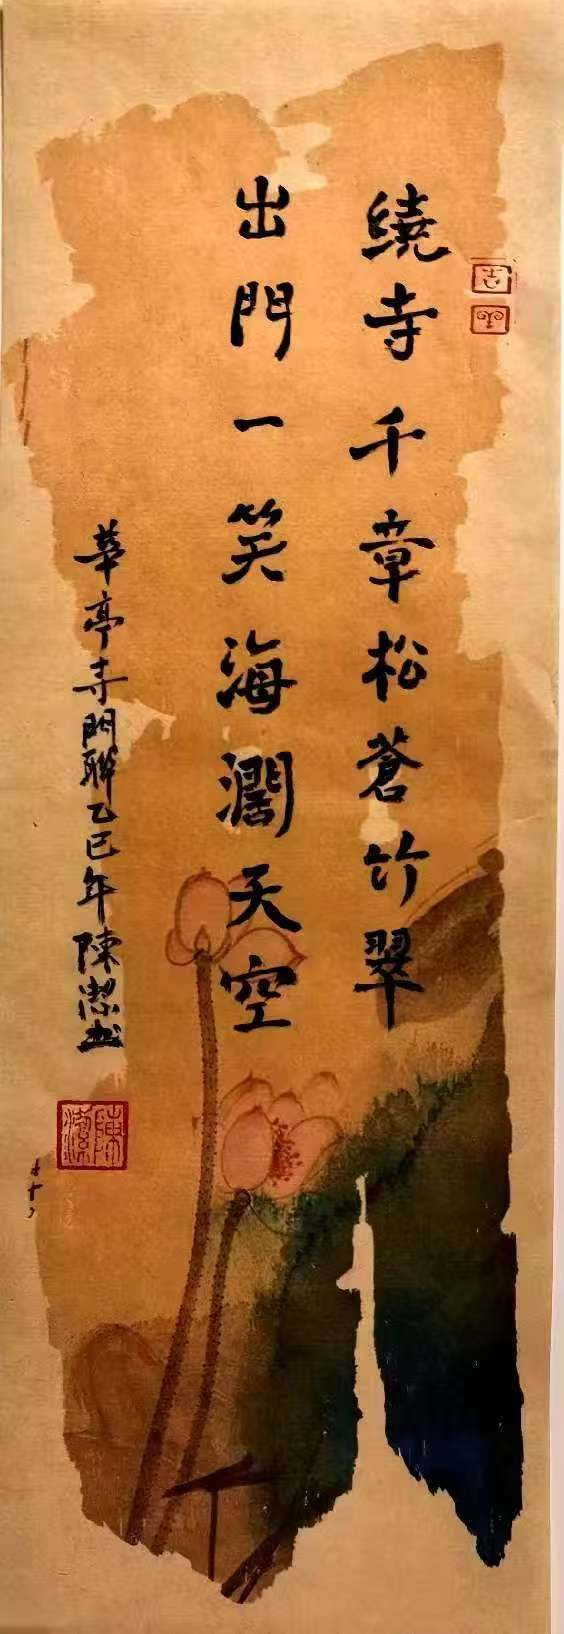 繞寺千章松蒼竹翠
出門一笑海濶天空
華亭寺門聯乙巳年陳潔书
陳潔